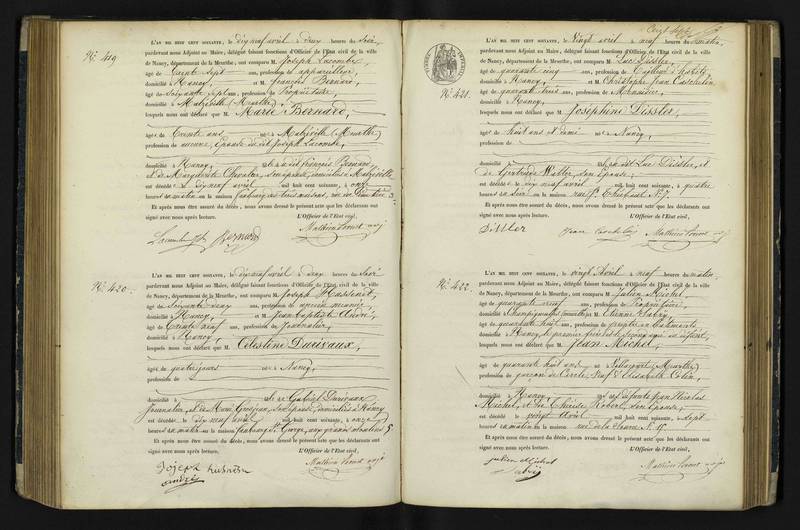 Nº 419
L'AN MIL HUIT CENT SOIXANTE, le dix neuf avril à deux heures du soir,
pardevant nous Adjoint au Maire, délégué faisant fonctions d'Officier de l'État civil de la ville
de Nancy, département de la Meurthe, ont comparu M. Joseph Lacombe,
âgé de trente sept ans, profession d'appareilleur,
domicilié à Nancy, et M. François Bernard,
âgé de soixante sept ans, profession de Propriétaire,
domicilié à Malzéville (Meurthe),
lesquels nous ont déclaré que M. Marie Bernard,
âgée de trente ans, née à Malzéville (Meurthe)
profession de aucune, épouse du dit Joseph Lacombe,
domicilié à Nancy, fille à dit François Bernard,
et de Marguerite Chevalier, son épouse, domiciliés à Malzéville
est décédée le dix neuf avril mil huit cent soixante, à onze
heures du matin en la maison faubourg des trois maisons,
Et après nous être assuré du décès, nous avons dressé le présent acte que les déclarants ont
signé avec nous après lecture. L'Officier de l'État civil,
Bernard
Nº 420
L'AN MIL HUIT CENT SOIXANTE, le dix neuf avril à deux heures du soir
pardevant nous Adjoint au Maire, délégué faisant fonctions d'Officier de l'État civil de la ville
de Nancy, département de la Meurthe, ont comparu M. Joseph
âgé de soixante deux ans, profession de ancien
domicilié à Nancy, et M. Jean Baptiste André,
âgé de trente neuf ans, profession de Journalier,
domicilié à Nancy,
lesquels nous ont déclaré que M. Célestine Durivaux,
âgée de quatre jours née à Nancy,
profession de
domicilié à fille de Gabriel Durivaux
Journalier, et de Son épouse, domiciliés à Nancy
est décédée le dix neuf avril mil huit cent soixante, à onze
heures du matin en la maison faubourg St. George, aux grands moulins 5
Et après nous être assuré du décès, nous avons dressé le présent acte que les déclarants ont
signé avec nous après lecture. L'Officier de l'État civil,
Joseph
andré
Nº 421
L'AN MIL HUIT CENT SOIXANTE, le vingt avril à neuf heures du matin,
pardevant nous Adjoint au Maire, délégué faisant fonctions d'Officier de l'État civil de la ville
de Nancy, département de la Meurthe, ont comparu M. Luc Dissler,
âgé de quarante cinq ans, profession de Tailleur d'habits,
domicilié à Nancy, et M. Christophe Jean
âgé de quarante trois ans, profession de
domicilié à Nancy,
lesquels nous ont déclaré que M. Joséphine Dissler,
âgée de huit ans et demi née à Nancy,
profession de
domicilié à fille de dit Luc Dissler, et
de Gertrude Walter, son épouse,
est décédée le dix neuf avril mil huit cent soixante, à quatre
heures du soir en la maison rue St. Thiébaut Nº 7.
Et après nous être assuré du décès, nous avons dressé le présent acte que les déclarants ont
signé avec nous après lecture. L'Officier de l'État civil,
Dissler
Nº 422
L'AN MIL HUIT CENT SOIXANTE, le vingt avril à neuf heures du matin,
pardevant nous Adjoint au Maire, délégué faisant fonctions d'Officier de l'État civil de la ville
de Nancy, département de la Meurthe, ont comparu M. Julien Michel,
âgé de quarante neuf ans, profession de Propriétaire,
domicilié à Champigneulles (meurthe) et M. Etienne
âgé de quarante huit ans, profession de peintre en bâtiments
domicilié à Nancy, le premier frère le second ami du défunt,
lesquels nous ont déclaré que M. Jean Michel,
âgé de quarante huit ans né à (Meurthe)
profession de garçon de Cercle, Veuf d'Elisabeth Colin,
domicilié à Nancy, fils de défunts Jean Nicolas
Michel, et de Thérèse Robert, son épouse,
est décédé le vingt avril mil huit cent soixante, à sept
heures du matin en la maison rue
Et après nous être assuré du décès, nous avons dressé le présent acte que les déclarants ont
signé avec nous après lecture. L'Officier de l'État civil,
julien Michel